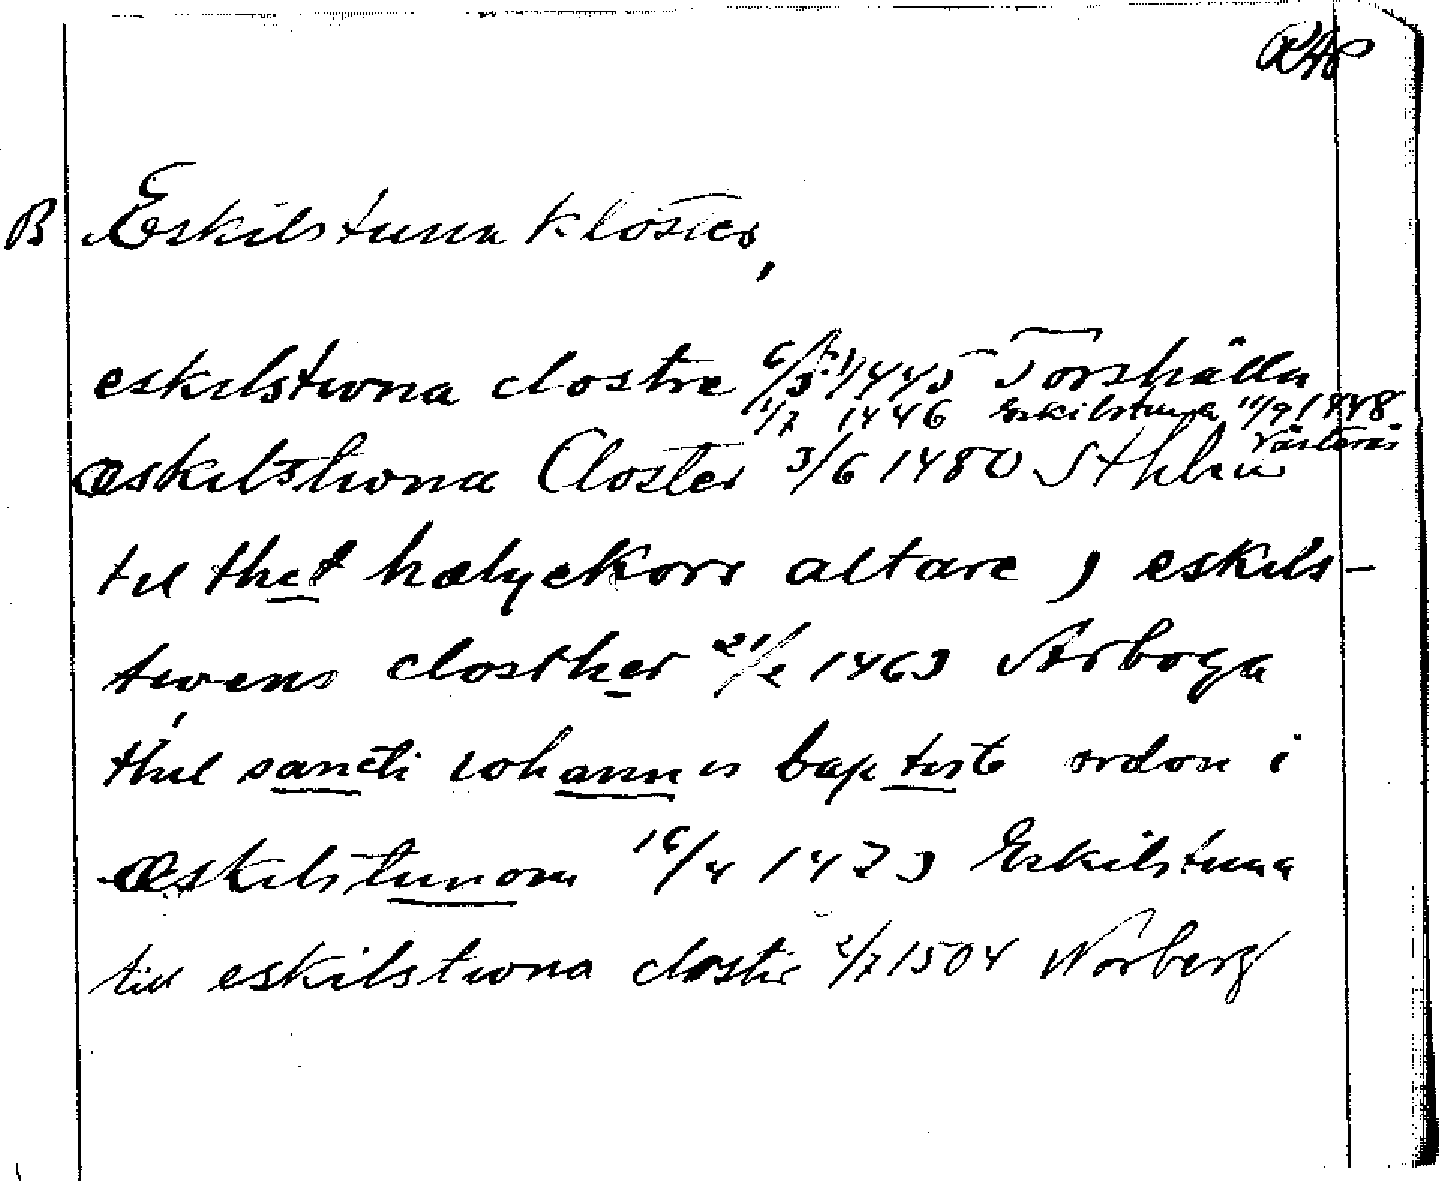 B Eskilstuna kloster,
eskilstwna clostre 6/3 1445 Torshälla
1/7 1446 Eskilstuna 11/9 1448
Västerås
æskilstwna Closter 3/6 1480 Sthlm
til thet hælgekors altare j eskils-
twens closther 21/2 1463 Arboga
thil sancti iohannis baptiste ordon i
æskilstunom 16/4 1473 Eskilstuna
till eskilstwna closter 2/7 1504 Norberg